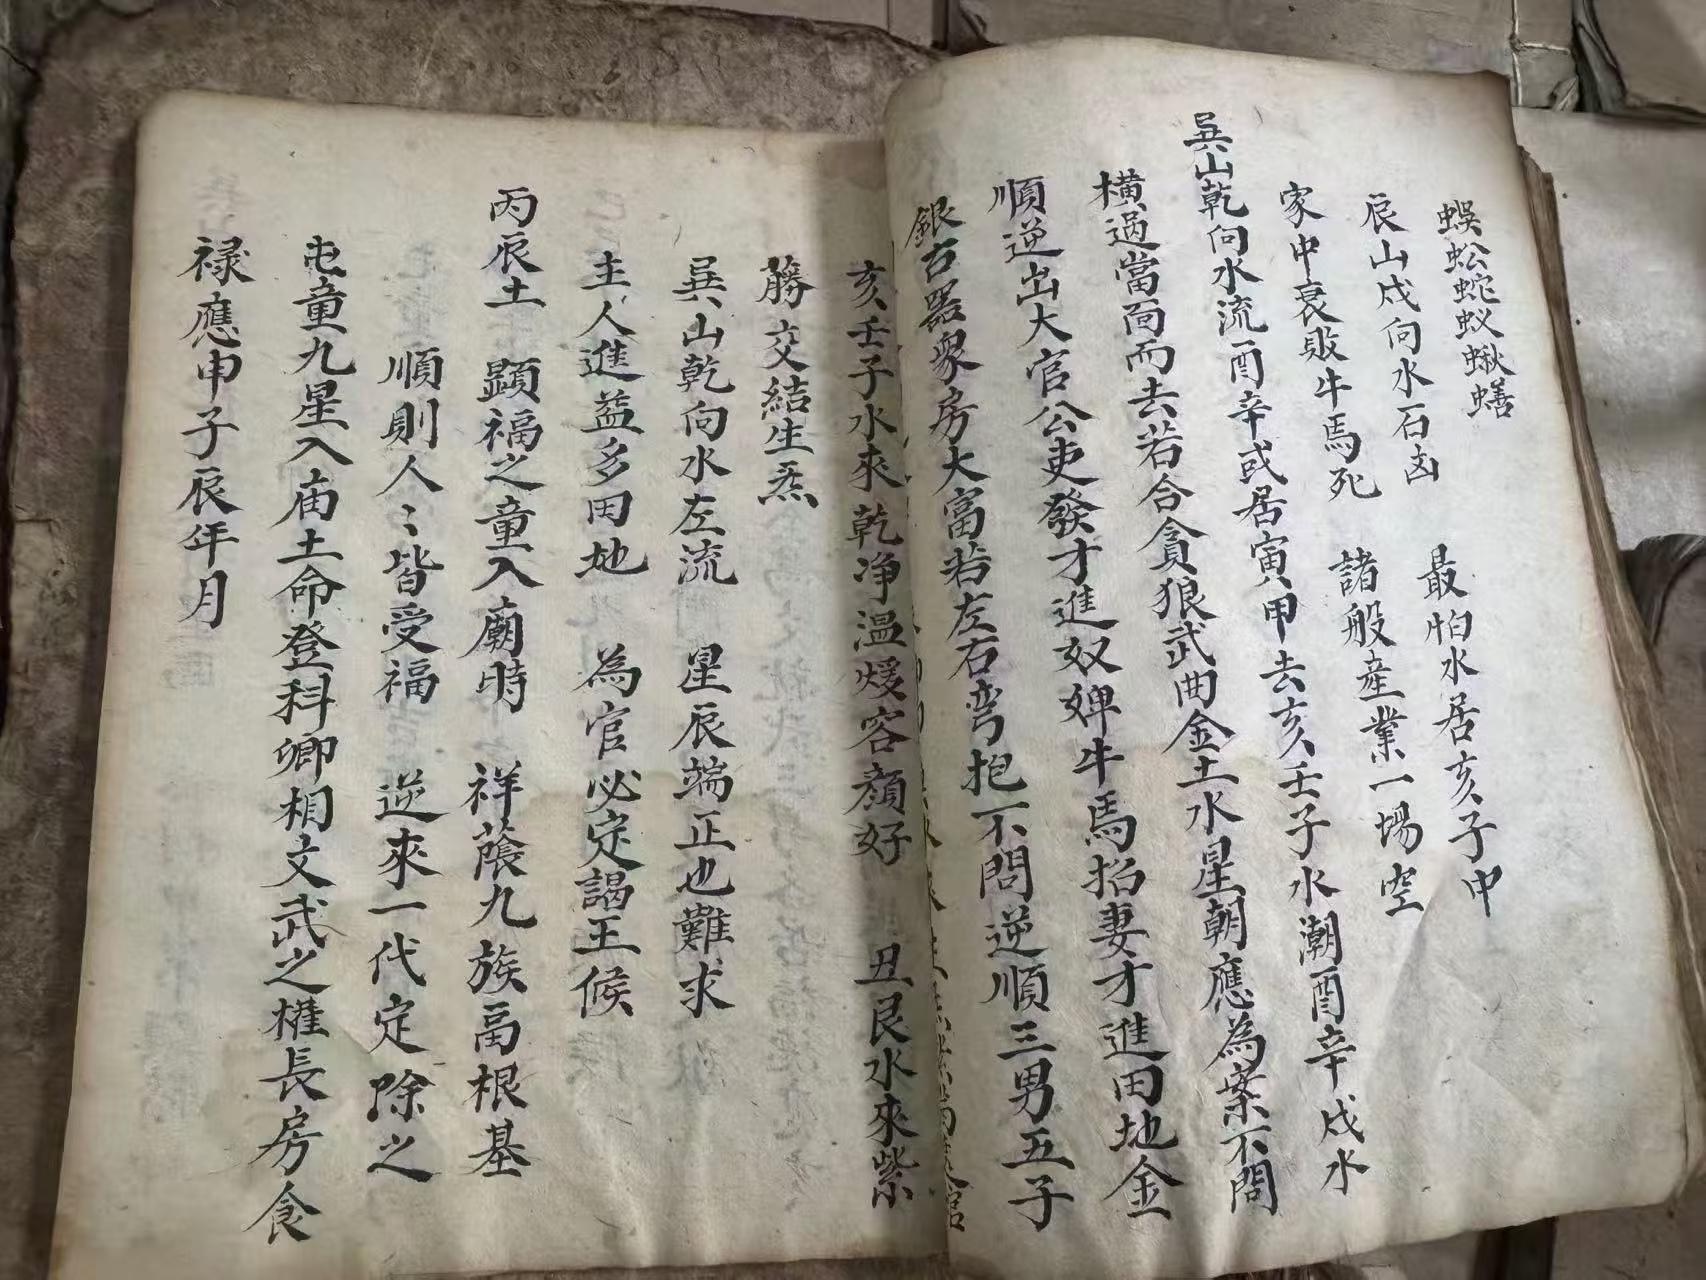 蜈蚣蛇蚁蝌蟮
辰山戌向水石凶 最怕水居亥子中
家中衰敗牛馬死 諸般産業一場空
巽山乾向水流酉辛或居寅甲去亥壬子水潮酉辛戌水
橫過當面而去若合貪狼武曲金土水星朝應為案不問
順逆出大官公吏發才進奴婢牛馬招妻才進田地金
銀古器衆房大富若左右弯抱不問逆順三男五子
亥壬子水來乾净温煖容顏好 丑艮水來紫
藤交結生炁
巽山乾向水左流 星辰端正也難求
主人進益多田地 為官必定謁王候
丙辰土 顕福之童入廟時 祥蔭九族畐根基
順則人〻皆受福 逆來一代定除之
屯童九星入庙土命登科卿相文武之權長房食
禄應申子辰年月